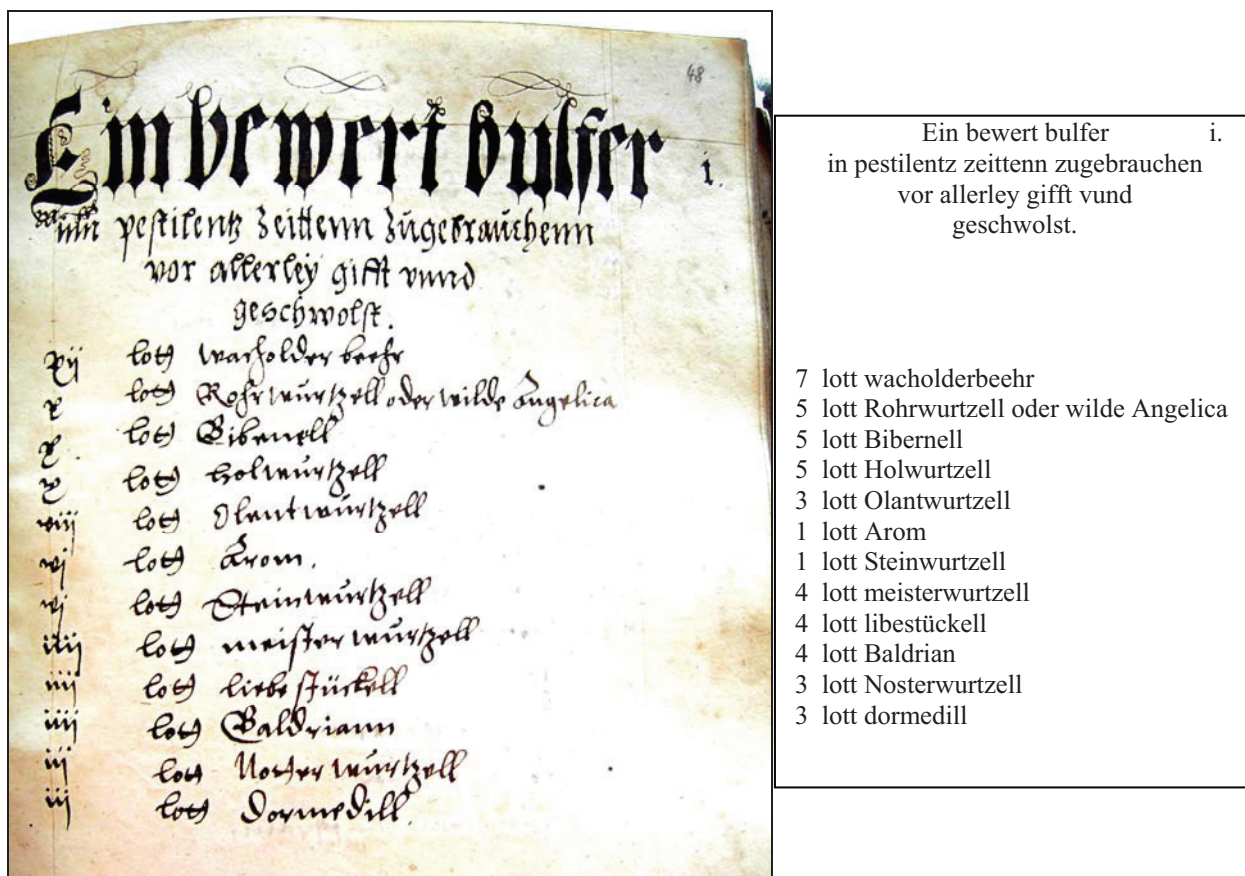 48.
Ein bewert bulfer i.
inn pestilentz zeittenn zůgebraůchenn
vor allerley gifft vnnd
geschwolst.
xij loth wacholder beehr
x loth Rohrwůrtzell oder wilde Angelica
x. loth Bibenell
x loth holwůrtzell
viij loth Olantwůrtzell
vj loth Arom.
vj loth Steinwůrtzell
iiij loth meisterwůrtzell
iiij loth liebestückell
iiij loth Baldriann
iij loth Notherwůrtzell
iij loth Dormedill.
Ein bewert bulfer i.
in pestilentz zeittenn zugebrauchen
vor allerley gifft vund
geschwolst.
7 lott wacholderbeehr
5 lott Rohrwurtzell oder wilde Angelica
5 lott Bibernell
5 lott Holwurtzell
3 lott Olantwurtzell
1 lott Arom
1 lott Steinwurtzell
4 lott meisterwurtzell
4 lott libestückell
4 lott Baldrian
3 lott Nosterwurtzell
3 lott dormedill